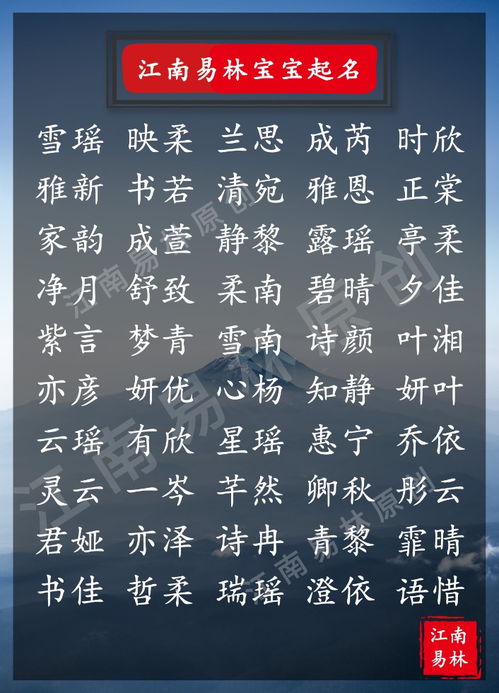 江南易林宝宝起名
雪瑶 映柔 兰思 成芮 时欣
雅新 书若 清宛 雅恩 正棠
家韵 成萱 静黎 露瑶 亭柔
净月 舒致 柔南 碧晴 夕佳
紫言 梦青 雪南 诗颜 叶湘
亦彦 妍优 心杨 知静 妍叶
云瑶 有欣 星瑶 惠宁 乔依
灵云 一岑 芊然 卿秋 彤云
君娅 亦泽 诗冉 青黎 霏晴
书佳 哲柔 瑞瑶 澄依 语惜
江南易林原创
江南易林原创
江南易林原创
江南
易林